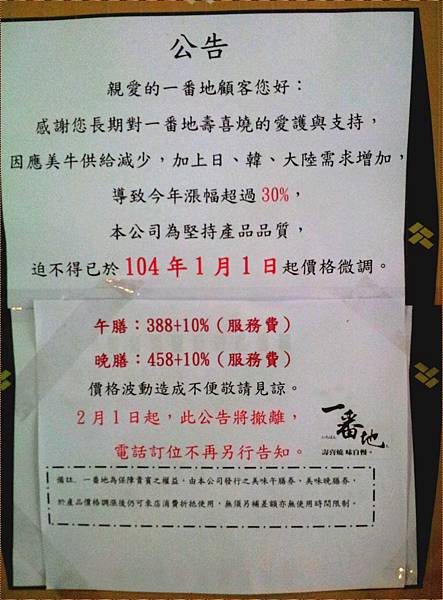 公告
親愛的一番地顧客您好：
感謝您長期對一番地壽喜燒的愛護與支持，
因應美牛供給減少，加上日、韓、大陸需求增加，
導致今年漲幅超過30%，
本公司為堅持產品品質，
迫不得已於 104年1月1日起價格微調。
午膳：388+10%（服務費）
晚膳：458+10%（服務費）
價格波動造成不便敬請見諒。
2月1日起，此公告將撤離，
電話訂位不再另行告知。
一番地
いちばん
壽喜燒 味自慢。
備註、一番地為保障貴賓之權益，由本公司發行之美味午膳券，美味晚膳券，
於產品價格調漲後仍可來店消費折抵使用，無須另補差額亦無使用時間限制。